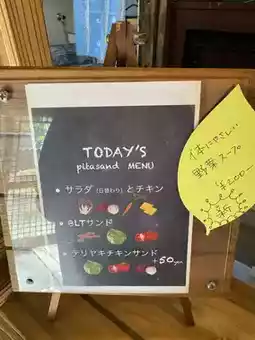 TODAY'S
pitasand MENU
• サラダ(日替わり)とチキン
• BLTサンド
• テリヤキチキンサンド
+50yen
体にやさしい
野菜スープ
¥200-
新